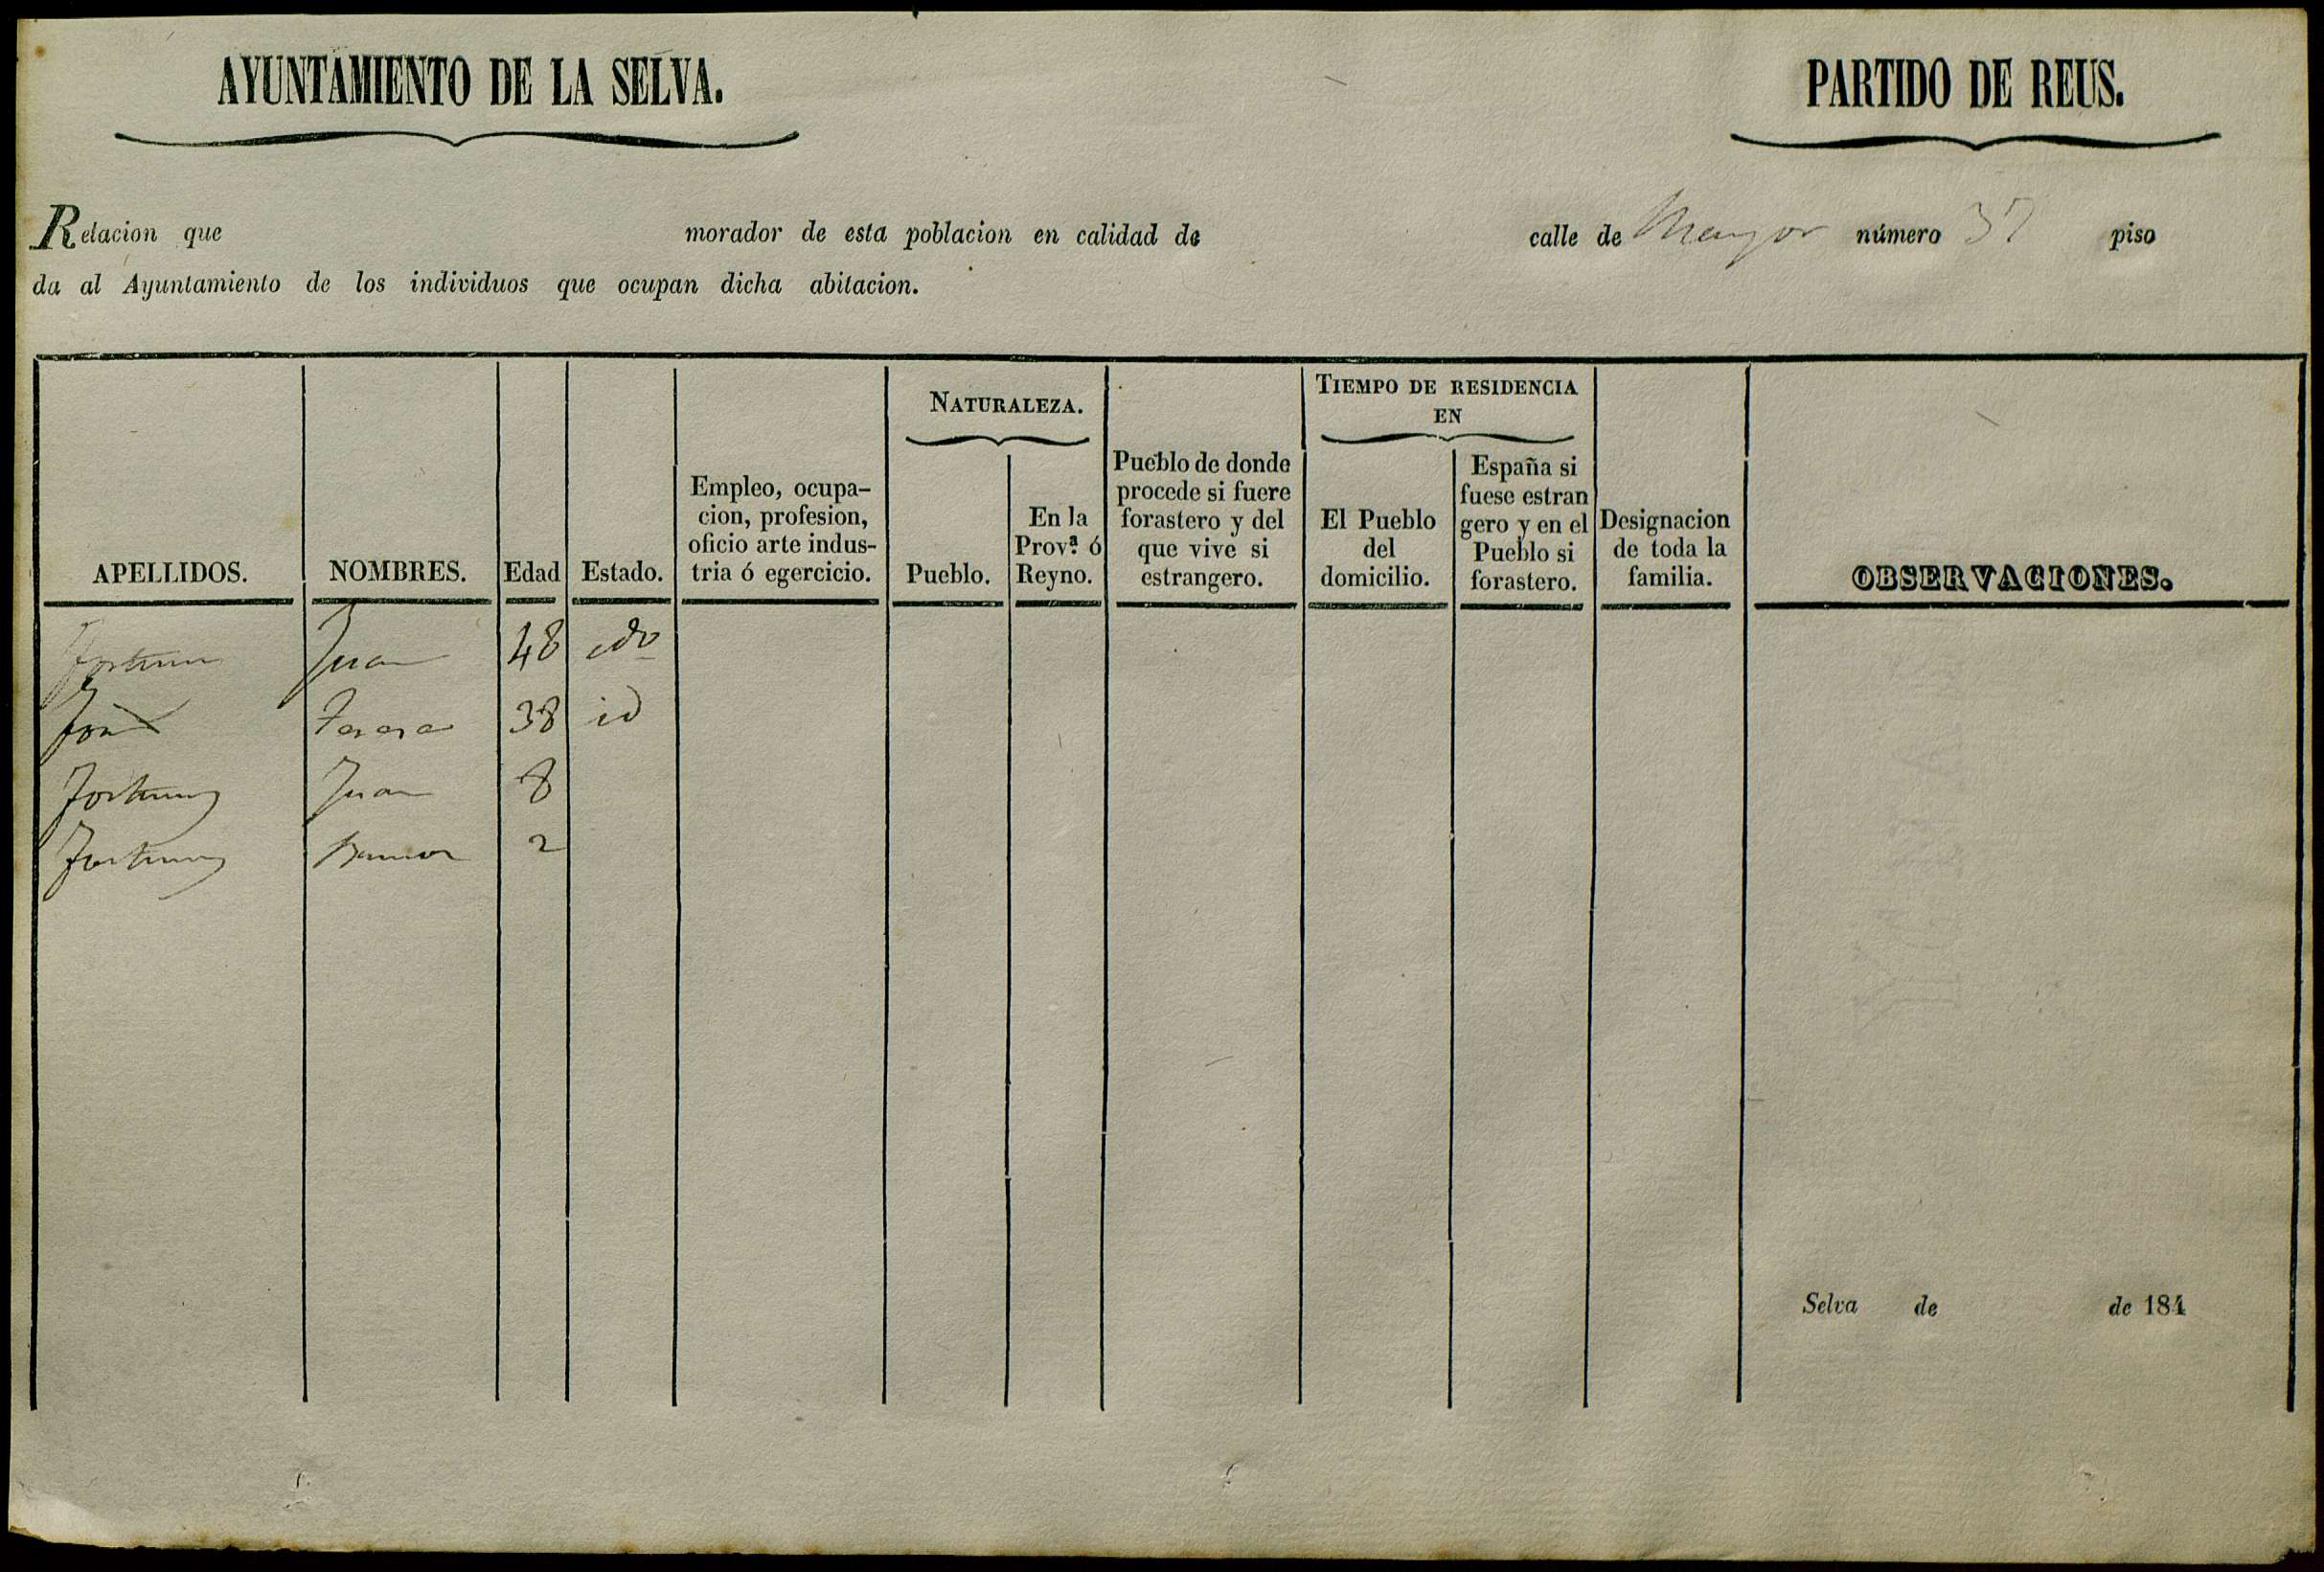 AYUNTAMIENTO DE LA SELVA.
PARTIDO DE REUS.
Relacion que morador de esta poblacion en calidad de calle de Mayor número 37 piso
da al Ayuntamiento de los individuos que ocupan dicha abitacion.
APELLIDOS.
NOMBRES.
Edad
Estado.
Empleo, ocupa-
cion, profesion,
oficio arte indus-
tria ó egercicio.
NATURALEZA.
Pueblo.
En la
Prov.ª ó
Reyno.
Pueblo de donde
procede si fuere
forastero y del
que vive si
estrangero.
TIEMPO DE RESIDENCIA
EN
El Pueblo
del
domicilio.
España si
fuese estran
gero y en el
Pueblo si
forastero.
Designacion
de toda la
familia.
OBSERVACIONES.
Fortuny Juan 48 cdo
Teresa 38 id
Fortuny Juan 8
Fortuny Ramon 2
Selva de de 184